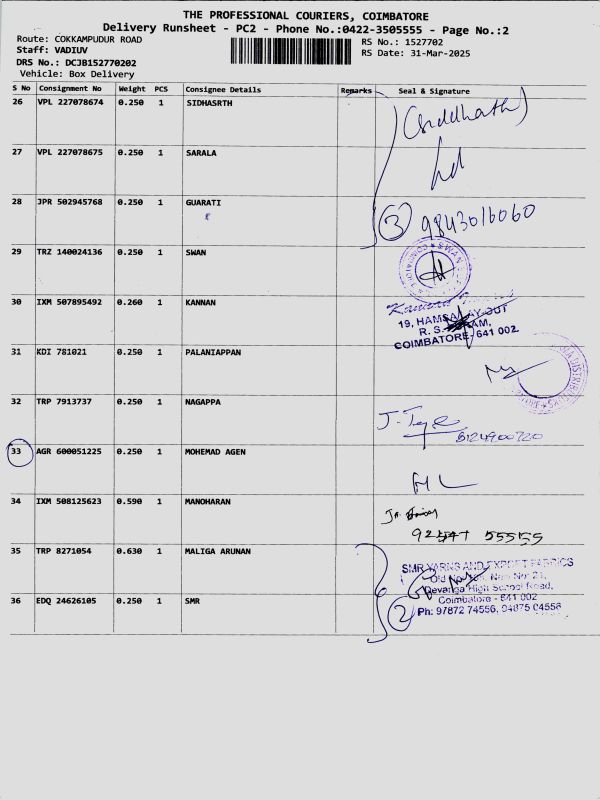 THE PROFESSIONAL COURIERS, COIMBATORE
Delivery Runsheet - PC2 - Phone No.:0422-3505555 - Page No.:2
Route: COKKAMPUDUR ROAD
RS No.: 1527702
Staff: VADIUV
RS Date: 31-Mar-2025
DRS No.: DCJB152770202
Vehicle: Box Delivery
S No Consignment No Weight PCS Consignee Details Remarks Seal & Signature
26 VPL 227078674 0.250 1 SIDHASRTH
(Siddhath)
27 VPL 227078675 0.250 1 SARALA
28 JPR 502945768 0.250 1 GUARATI
3 9843016060
29 TRZ 140024136 0.250 1 SWAN
SWAN
30 IXM 507895492 0.260 1 KANNAN
19, HAMSA LAY OUT
R. S.
COIMBATORE, 641 002
31 KDI 781021 0.250 1 PALANIAPPAN
32 TRP 7913737 0.250 1 NAGAPPA
8124900720
33 AGR 600051225 0.250 1 MOHEMAD AGEN
34 IXM 508125623 0.590 1 MANOHARAN
55555
35 TRP 8271054 0.630 1 MALIGA ARUNAN
SMR YARNS AND EXPORT FABRICS
Old No. New No. 21,
Devanga High School Road,
Coimbatore - 641 002
36 EDQ 24626105 0.250 1 SMR
2 Ph: 97872 74556, 94875 04556